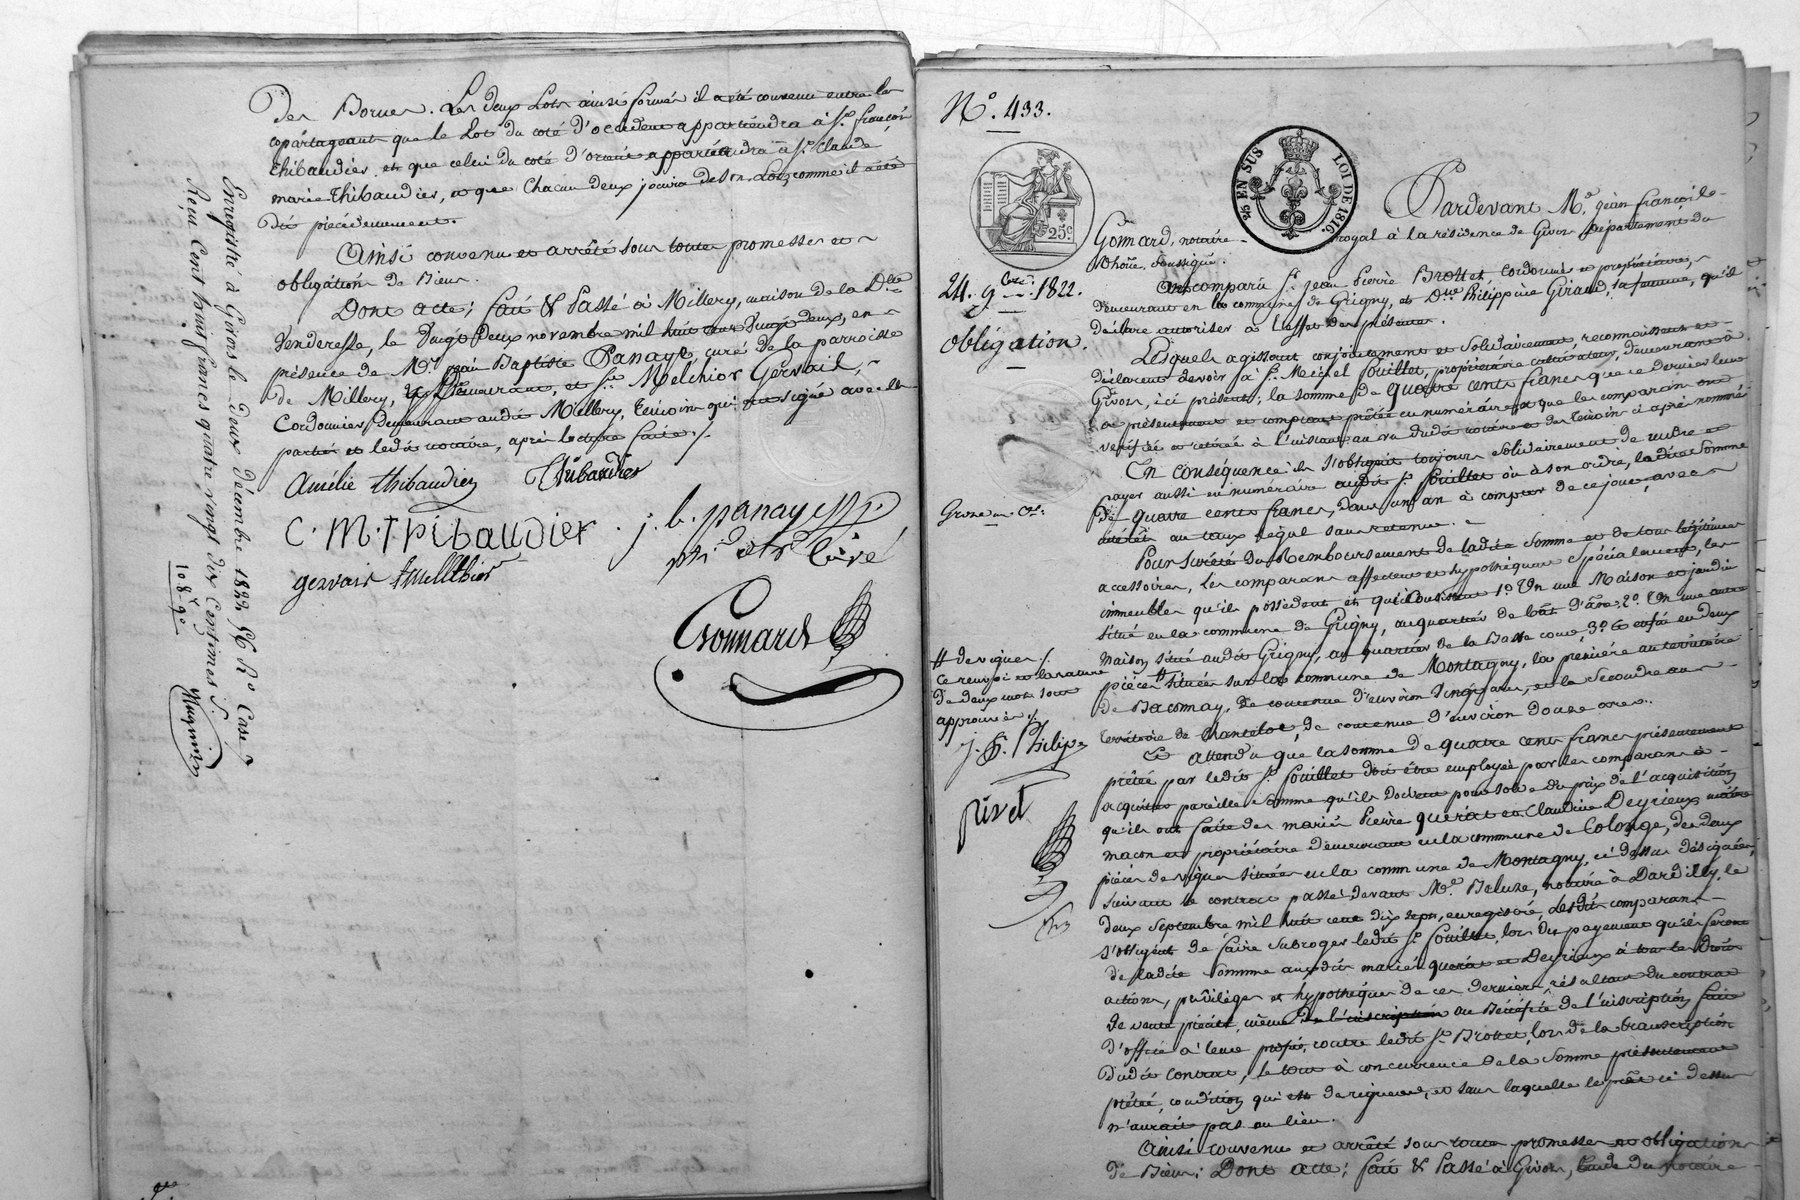 Des Bornes. Les deux Lots ainsi formés il a été convenu entre les
copartageans que le Lot du coté d'occident appartiendra à Sr. françois
thibaudier, et que celui du coté d'orient appartiendra à Sr. Claude
marie thibaudier, et que Chacun deux jouira de son Lot, comme il a été
dit précédemment.
Ainsi convenu et arrêté sous toutes promesses et
obligation de Biens.
Dont acte; fait & Passé à Millery, maison de la Dlle
Venderesse, le Vingt Deux novembre mil huit cent Vingt deux, en
présence de Mr. jean Baptiste Panaye, curé de la parroisse
de Millery, y Demeurant, et Sr. Melchior Gervais,
Cordonnier Demeurant audit Millery, témoins qui ont signé avec les
parties et ledit notaire, après lecture faite ./.
Amélie thibaudier Thibaudier
C. M. Thibaudier . j. b. panaye
gervais
Gonnard
Enregistré à Givors le deux décembre 1822
Reçu Cent huit francs quatre vingt dix Centimes
108f 90c
N°. 433.
25c
25 EN SUS LOI DE 1816
24. 9bre 1822.
obligation.
Grosse
Pardevant Me. jean françois
Gonnard, notaire royal à la résidence de Givors, Département du
Rhône, soussigné.
Ont comparu Sr. jean Pierre Brottet, Cordonnier et propriétaire,
demeurant en la commune de Grigny, et Dme Philippine Giraud, sa femme, qu'il
déclare autoriser à l'effet des présentes.
Lesquels agissant conjointement et solidairement, reconnoissent et
déclarent devoir à Sr. Michel Fouillet, propriétaire cultivateur, demeurant à
Givors, ici présent; la somme de quatre cents francs que ce dernier leur
a présentement et comptant prêtée en numéraire et que les comparans ont
verifiée et retirée à l'instant au vu dudit notaire et des témoins ci après nommés
En conséquence ils s'obligent toujours solidairement de rendre et
payer aussi en numéraire audit Sr. fouillet ou à son ordre, ladite somme
de quatre cents francs, dans un an à compter de ce jour, avec
intérêt au taux légal sans retenue.
Pour sureté du Remboursement de ladite somme et de tous légitimes
accessoires, les comparans affectent et hypothèquent spécialement, les
immeubles qu'ils possèdent et qui Consistent 1°. En une Maison et jardin
situé en la commune de Grigny, au quartier de 2°. En une autre
maison située audit Grigny, au quartier de la Basse cour, 3°. Et enfin en deux
pièces # situées sur la commune de Montagny, la première au territoire
de Bacomay, de contenue d'environ Vingt ares, et la seconde au
territoire de Chantelot, de contenue d'environ Douze ares.
# de vignes /.
Ce renvoi et la rature
de deux mots sont
approuvés /.
Et attendu que la somme de quatre cents francs présentement
prêtée par ledit Sr. fouillet doit être employée par les comparans à
acquitter pareille somme qu'ils doivent pour solde du prix de l'acquisition
qu'ils ont faite des mariés Pierre querat et Claudine Deyrieux
maçon et propriétaire demeurant en la commune de Colonge, de deux
pièces de vignes situées en la commune de Montagny, ci dessus désignées,
suivant le contrat passé devant Me. Beluze, notaire à Dardilly, le
deux Septembre mil huit cent dix sept, enregistré, lesdits comparans
s'obligent de faire subroger ledit Sr. fouillet, lors du payement qu'ils feront
de ladite somme auxdits mariés querat et Deyrieux à tous les Droits
actions, priviléges et hypothéques de ces derniers résultant du contrat
de vente précité, même de l'inscription au Bénéfice de l'inscription faite
d'office à leur profit, contre ledit Sr. Brottet, lors de la transcription
dudit contrat, le tout à concurrence de la somme présentement
prêtée, condition qui est de rigueur, et sans laquelle le prêt ci dessus
n'aurait pas eu lieu.
Ainsi convenu et arrêté sous toutes promesses et obligations
de Biens; Dont acte; fait & Passé à Givors, Etude du Notaire